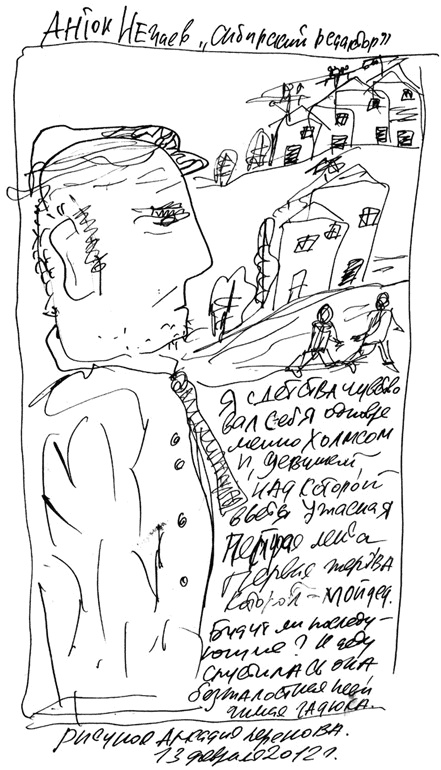 Антон Нечаев „Сибирский редактор"
Я с детства чувство
вал себя одновре
менно Холмсом
и девушкой,
над которой
вьётся ужасная
пёстрая лента
Первая жертва
которой – мой дед.
Будут ли последу-
ющие? К деду
спустилась она
безжалостная
гадюка.
рисунок Аркадия Перенова.
13 февраля 2012 г.